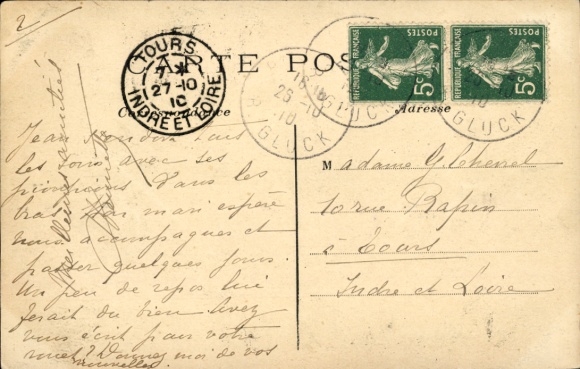 2
CARTE POSTALE
Correspondance
Adresse
TOURS
7 *
27-10
10
INDRE ET LOIRE
R. GLUCK
16
26-10
10
GLUCK
GLUCK
REPUBLIQUE FRANÇAISE
POSTES
5c
REPUBLIQUE FRANÇAISE
POSTES
5c
Jean tous
les jours avec ses
dans les
bras. Mon mari espère
vous accompagner et
passer quelques jours.
Un peu de repos lui
ferait du bien. Avez
vous écrit pour votre
? Donnez moi de vos
nouvelles.
Meilleures amitiés
M adame G.
10 rue Rapin
à Tours
Indre et Loire